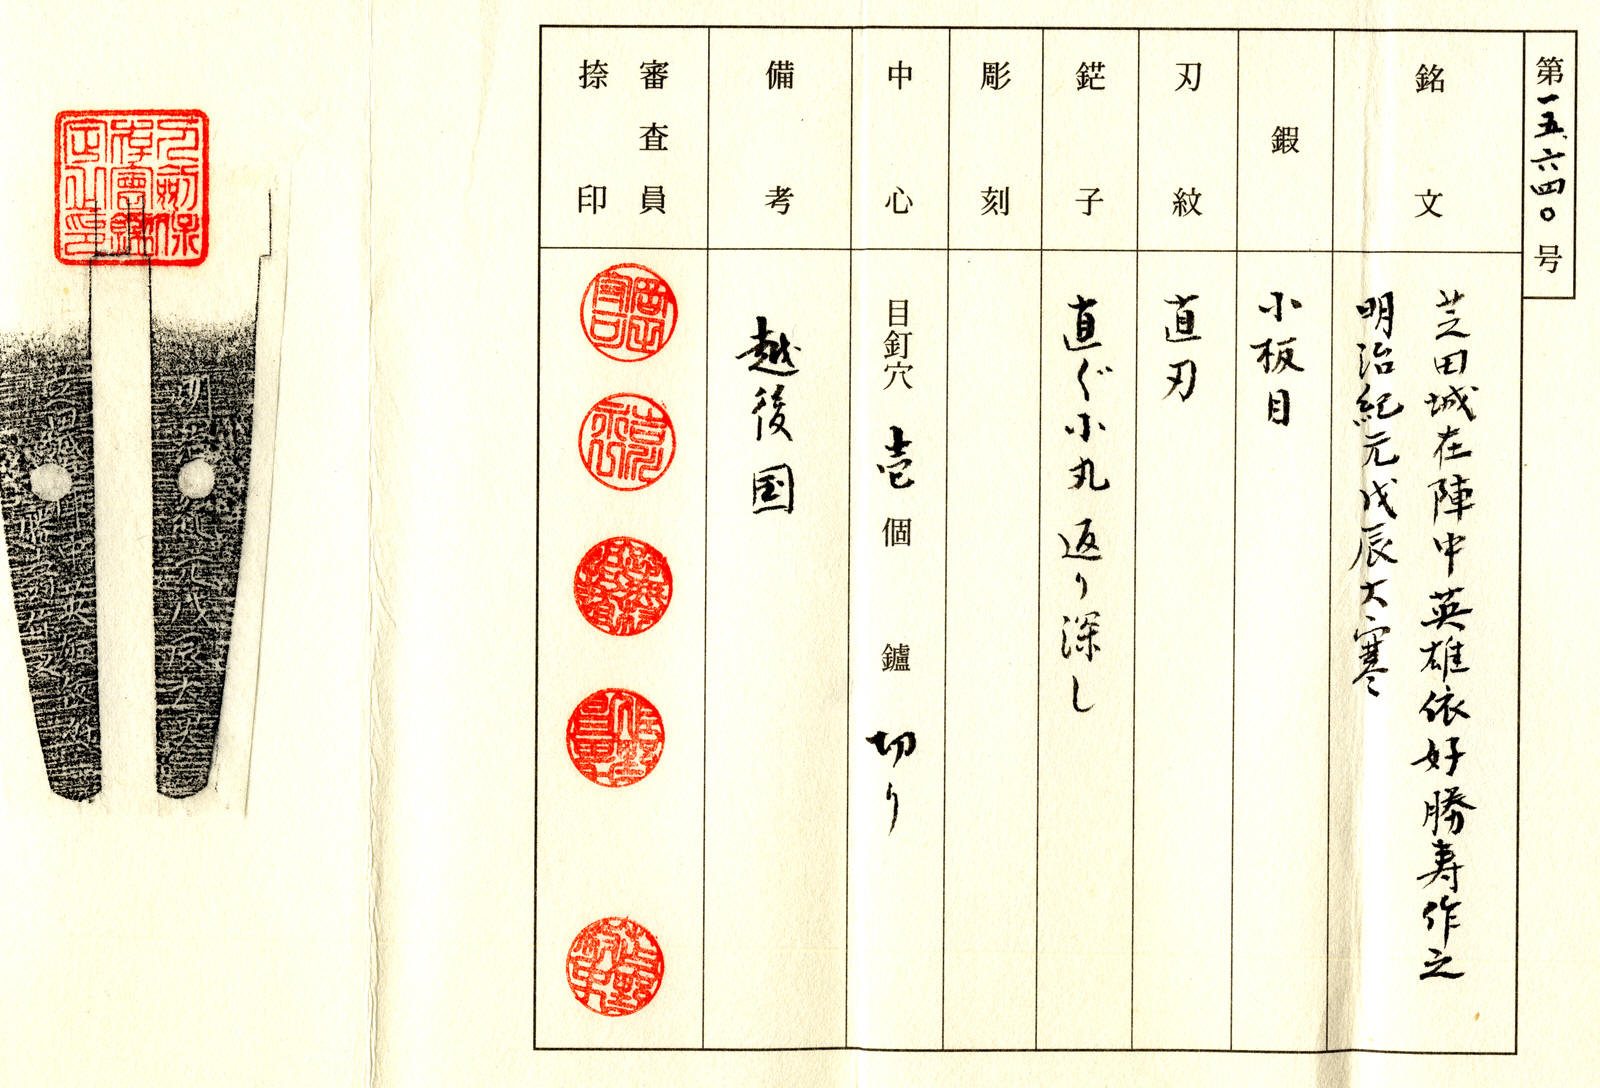 第一五、六四〇号
銘文
芝田城在陣中英雄依好勝寿作之
明治紀元戊辰大寒
鍜
小板目
刃紋
直刃
鋩子
直ぐ小丸返り深し
彫刻
中心
目釘穴 壱個 鑢 切り
備考
越後国
審査員
捺印